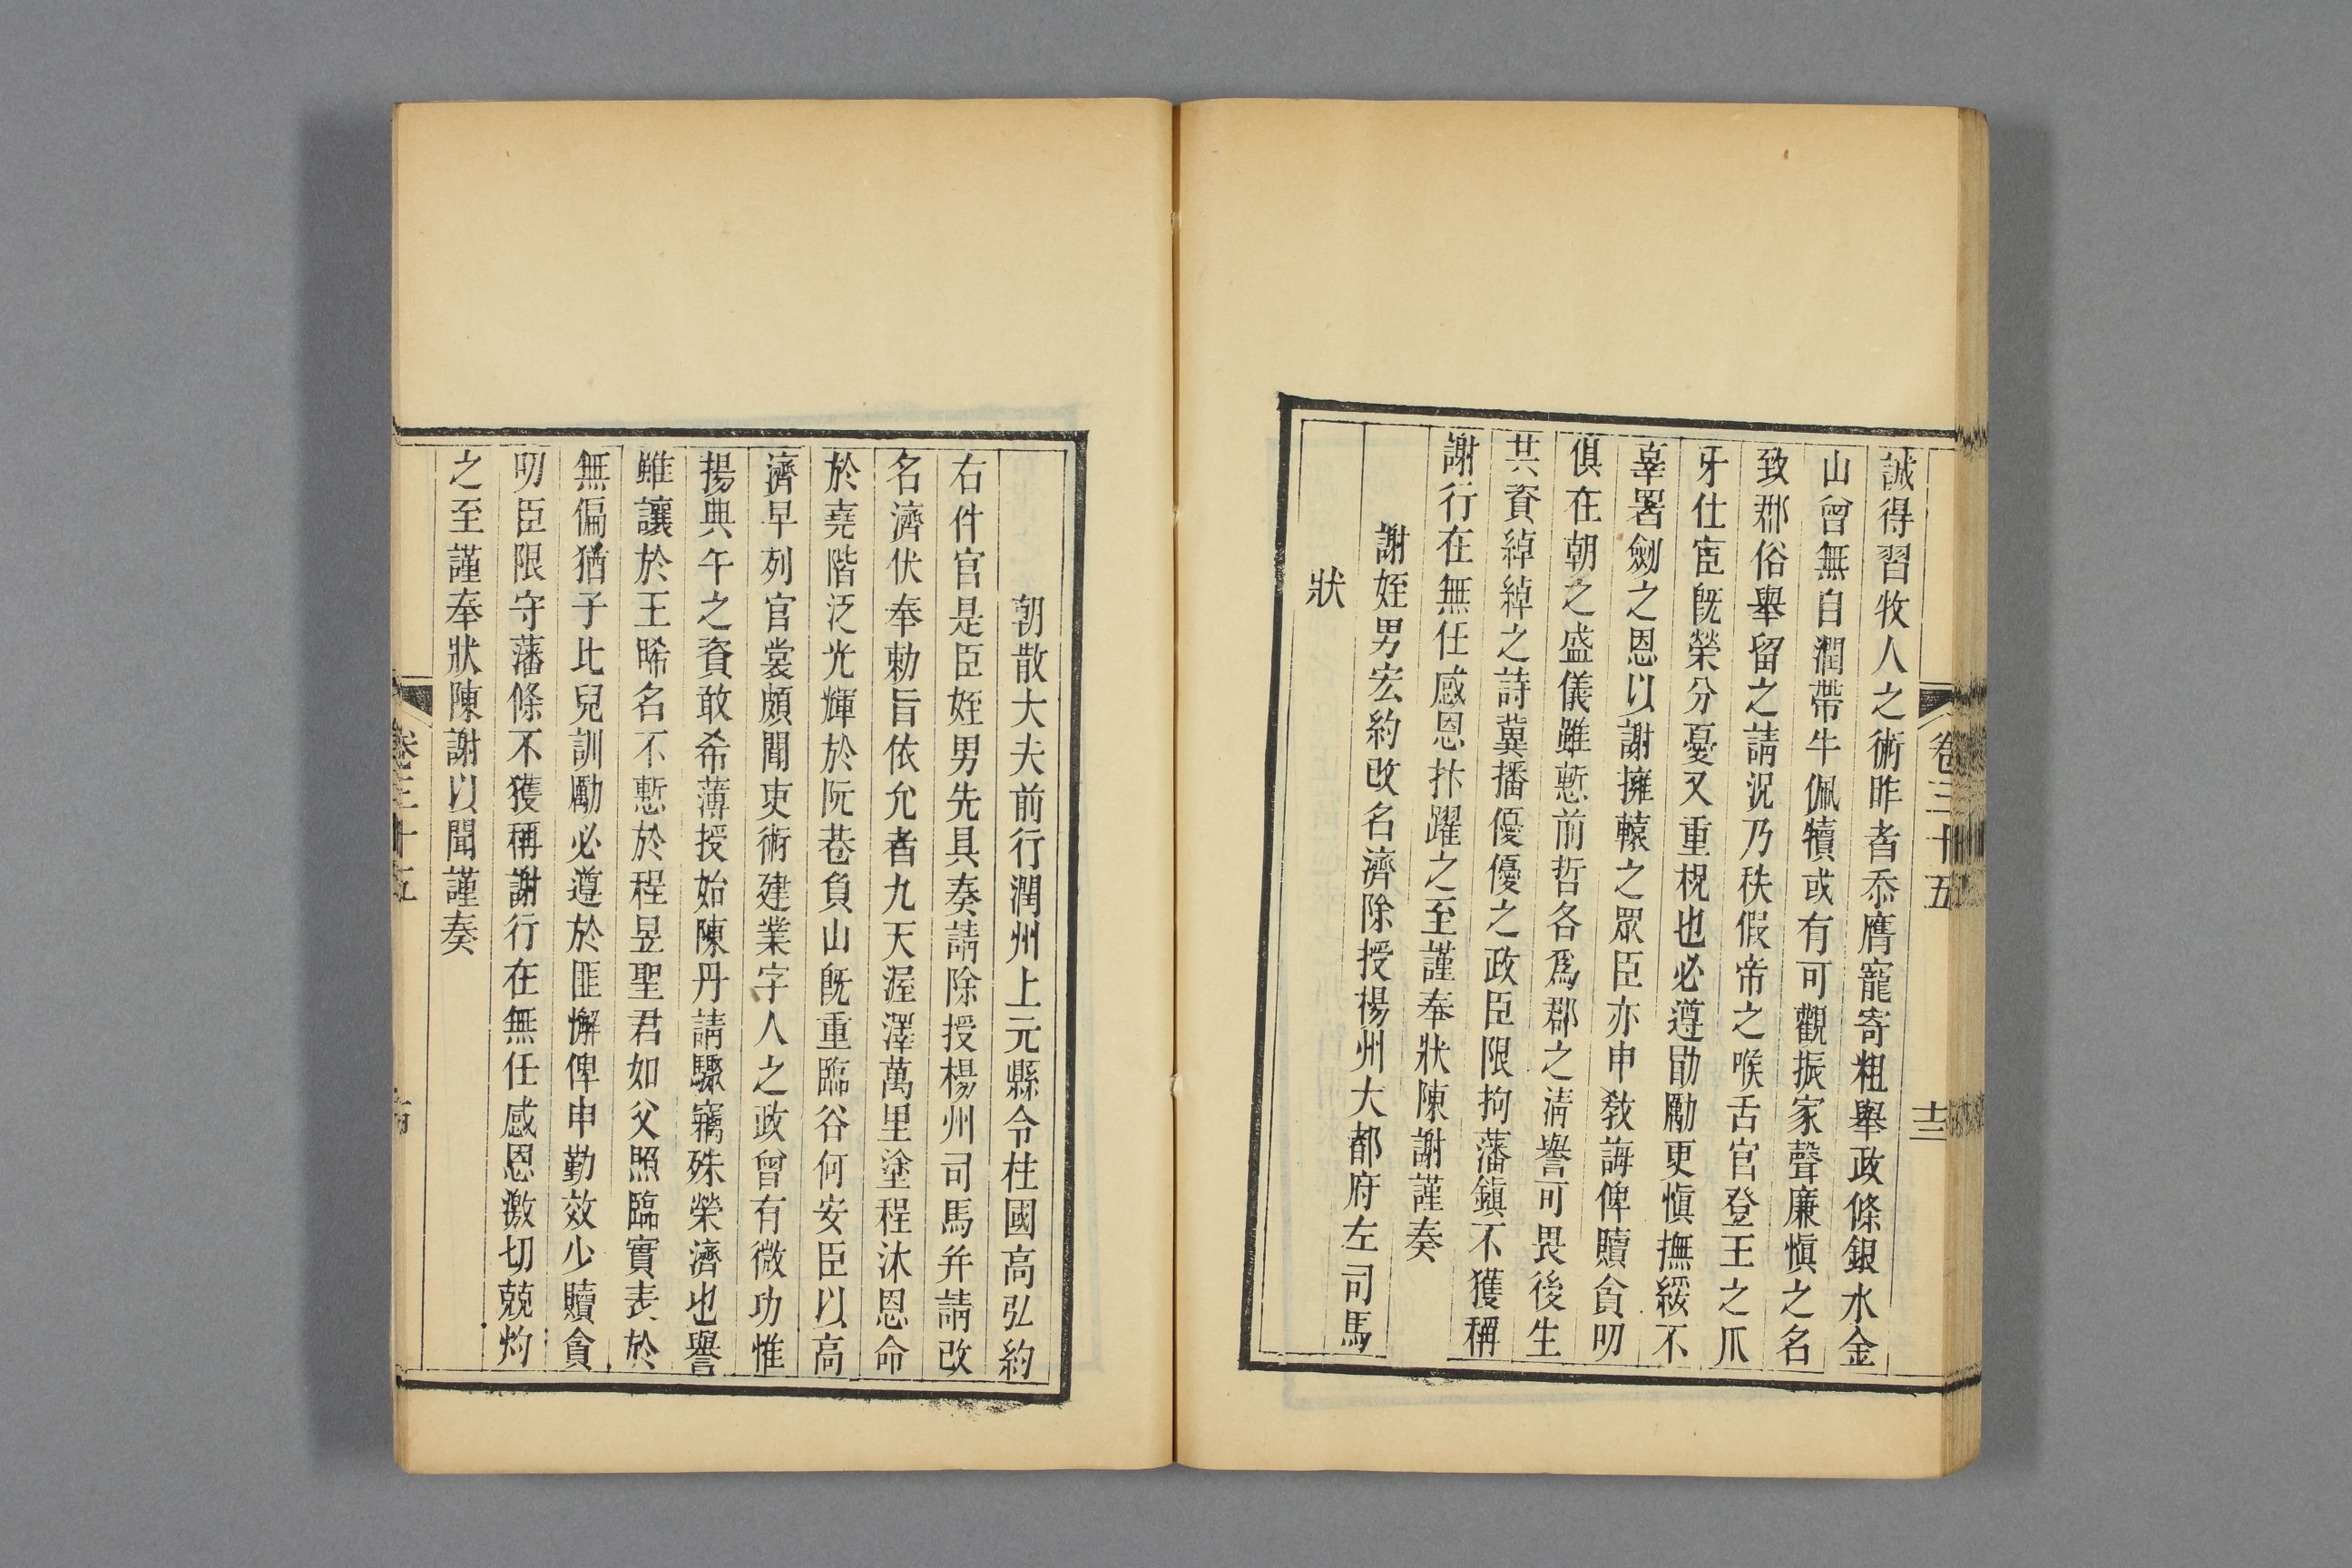 卷三十五
十三
誠得習牧人之術昨者忝膺寵寄粗舉政條銀水金
山曾無自潤帶牛佩犢或有可觀振家聲廉愼之名
致郡俗舉留之請況乃秩假帝之喉舌官登王之爪
牙仕宦旣榮分憂又重梲也必遵勖勵更愼撫綏不
辜署劒之恩以謝擁轅之眾臣亦申敎誨俾贖貪叨
俱在朝之盛儀雖慙前哲各爲郡之淸譽可畏後生
共資綽綽之詩冀播優優之政臣限拘藩鎭不獲稱
謝行在無任感恩抃躍之至謹奉狀陳謝謹奏
謝姪男宏約改名濟除授楊州大都府左司馬
狀
朝散大夫前行潤州上元縣令柱國高弘約
右件官是臣姪男先具奏請除授楊州司馬幷請改
名濟伏奉勅旨依允者九天渥澤萬里塗程沐恩命
於堯階泛光輝於阮巷負山旣重臨谷何安臣以高
濟早列官裳頗聞吏術建業字人之政曾有微功惟
揚典午之資敢希薄授始陳丹請驟竊殊榮濟也譽
雖讓於王晞名不慙於程昱聖君如父照臨實表於
無偏猶子比兒訓勵必遵於匪懈俾申勤效少贖貪
叨臣限守藩條不獲稱謝行在無任感恩激切兢灼
之至謹奉狀陳謝以聞謹奏
卷三十五